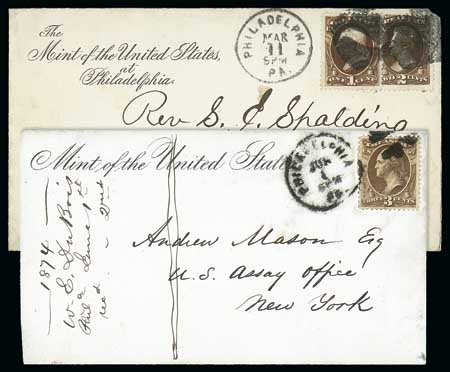 The
Mint of the United States,
at
Philadelphia.
PHILADELPHIA
MAR
11
5PM
PA.
ONE 1 CENT
2 CENTS
Rev. S. J. Spalding
Mint of the United States
PHILADELPHIA
JUN
1
PA.
THREE 3 CENTS
1874
W. E. DuBois
Phila June 1st
recd
Andrew Mason Esq
U.S. Assay Office
New York